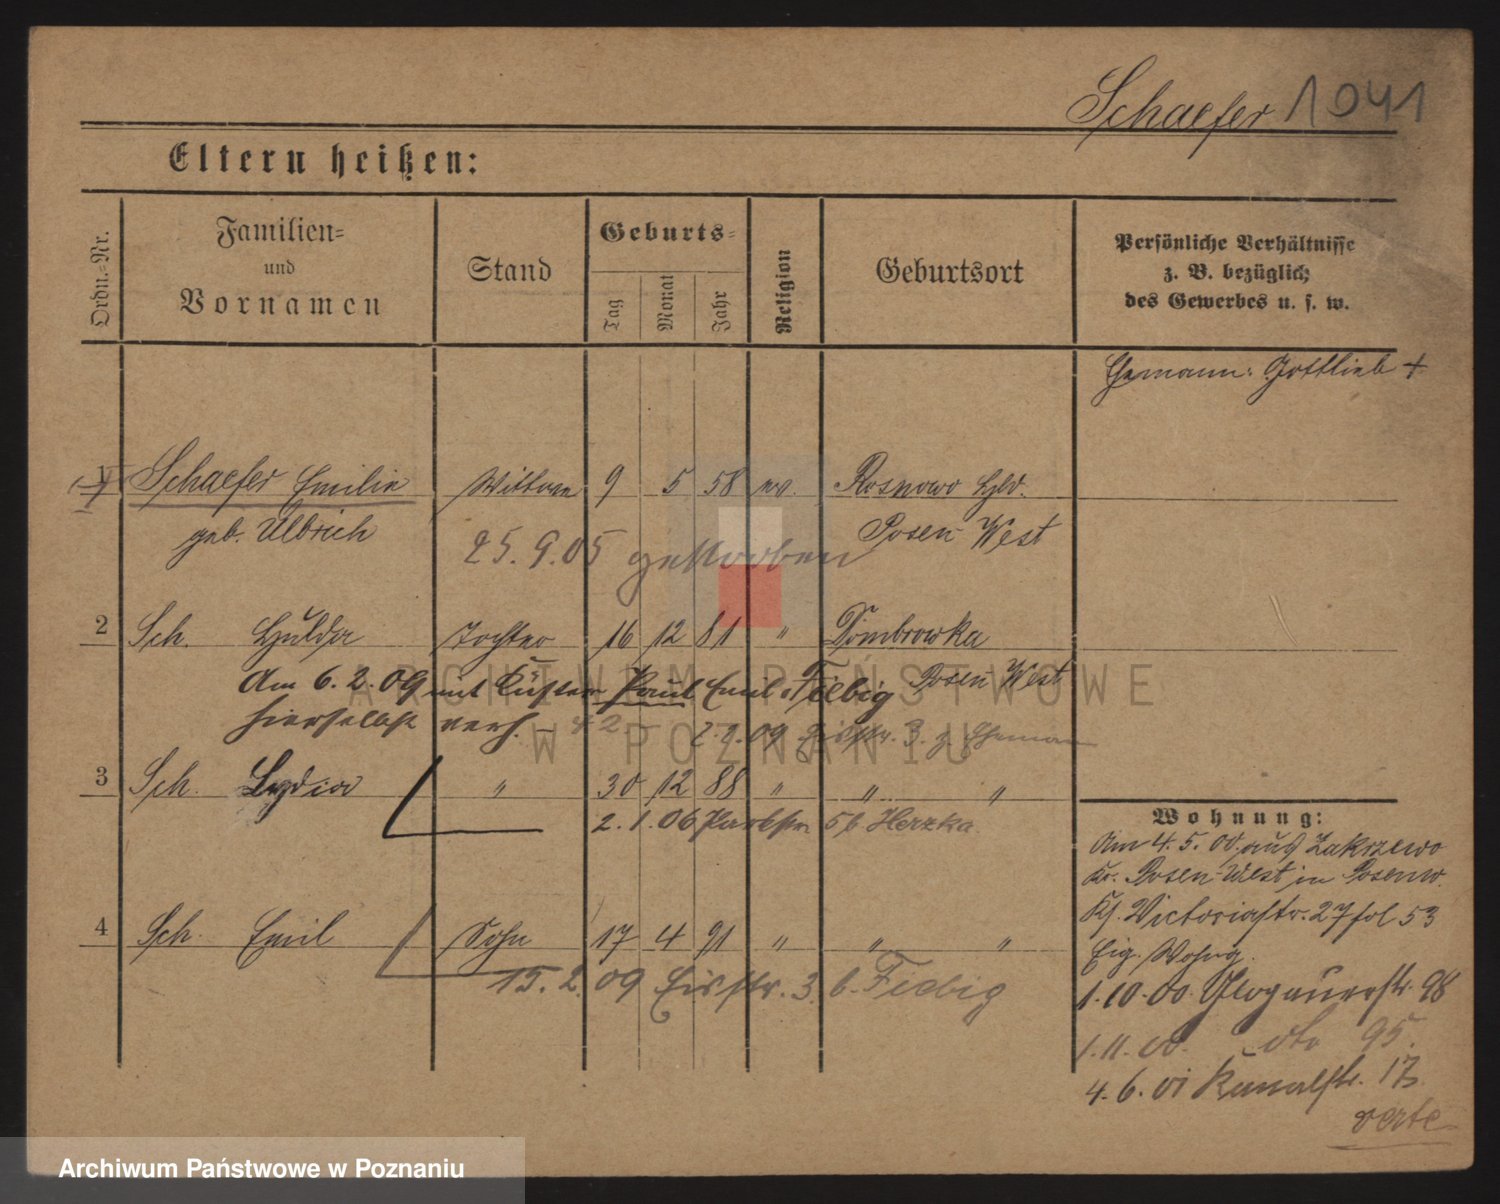 Schaefer 1041
Eltern heißen:
Ordn.-Nr.
Familien-
und
Vornamen
Stand
Geburts-
Tag
Monat
Jahr
Religion
Geburtsort
Persönliche Verhältnisse
z. B. bezüglich
des Gewerbes u. s. w.
Ehemann: Gottlieb +
1 Schaefer Emilie Wittwe 9 5 58 ev. Rosnowo Hld.
geb. Ulbrich Posen West
25.9.05 gestorben
2 Sch. Hulda Tochter 16 12 81 " Dombrowka
Posen West
Am 6.2.09 mit Küster Paul Emil Fiebig
hierselbst verh. – 2.2.09 Eisstr. 3. z. Ehemann
3 Sch. Lydia " 30 12 88 " " "
2.1.06 Parkstr. 5 b Herzka
4 Sch. Emil Sohn 17 4 91 " " "
15.2.09 Eisstr. 3. b. Fiebig
Wohnung:
Am 4.5.00. aus Zakrzewo
Kr. Posen-West in Posen W.
Kf. Victoriastr. 27 fol 53
Eig. Wohng.
1.10.00. Glogauerstr. 98
1.11.00. dto 95.
4.6.01 Kanalstr. 17.
verte
ARCHIWUM PAŃSTWOWE
W POZNANIU
Archiwum Państwowe w Poznaniu